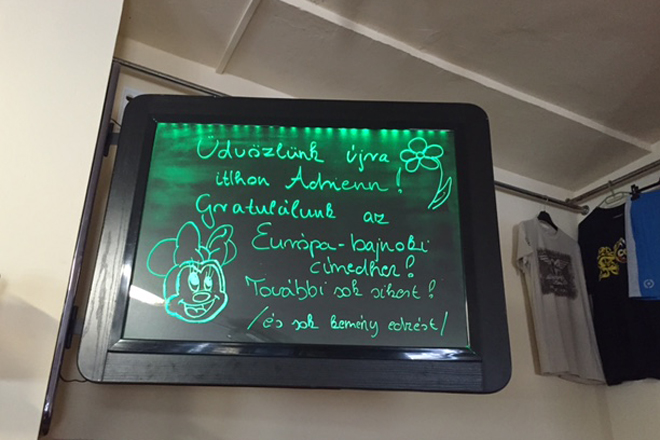 Üdvözlünk újra
itthon Adrienn!
Gratulálunk az
Európa-bajnoki
címedhez!
További sok sikert!
/és sok kemény edzést/